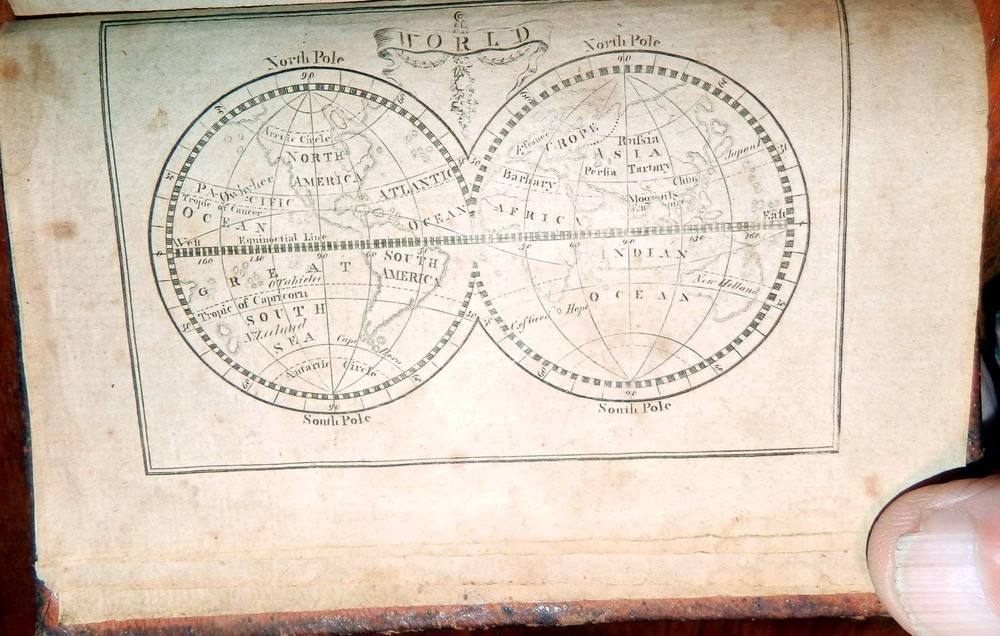 WORLD
North Pole
90
Arctic Circle
NORTH
AMERICA
ATLANTIC
OCEAN
PACIFIC
Owhyhee
Tropic of Cancer
OCEAN
West
Equinoctial Line
160
150
90
60
SOUTH
AMERICA
GREAT
Otahietie
Tropic of Capricorn
SOUTH
N. Zeeland
SEA
Cape Horn
Antartic Circle
90
South Pole
North Pole
90
France
EUROPE
Russia
ASIA
Persia
Tartary
Japan
Barbary
China
AFRICA
East
30
60
90
150
160
INDIAN
New Holland
OCEAN
C. of Good Hope
90
South Pole